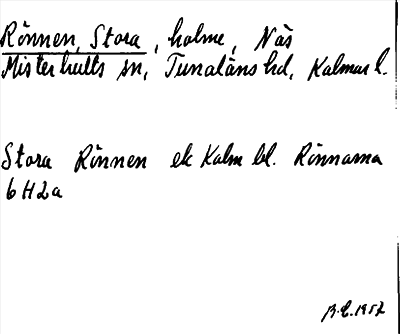 Rönnen, Stora, holme, Näs
Misterhults sn, Tunaläns hd, Kalmar l.
Stora Rönnen ek Kalm bl. Rönnarna
6H2a
B.E. 1957